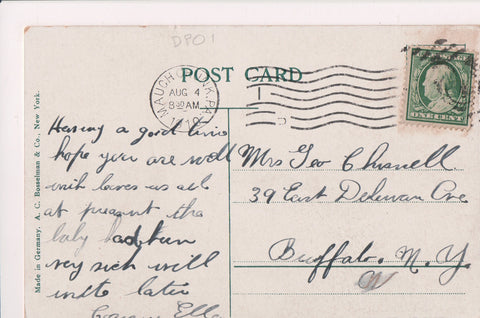 DPO 1
POST CARD
MAUCH CHUNK, PA.
AUG 4
8 30 AM
1910
ONE CENT
Made in Germany. A. C. Bosselman & Co., New York.
Having a good time
hope you are well
with us all
at present the
baby had been
very sick will
write later
Cousin Ella
Mrs Geo
39 East Delevan Ave
Buffalo. N. Y.